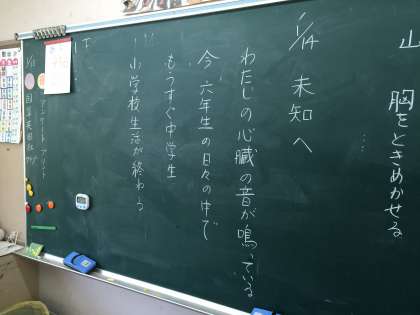 山
胸をときめかせる
1/14 未知へ
わたしの心臓の音が鳴っている
今 六年生の日々の中で
もうすぐ中学生
小学校生活が終わる
アンケート プリント